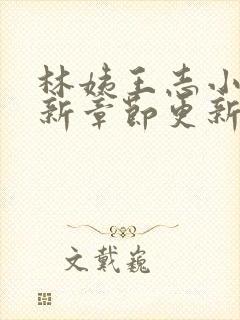 林姨王志小
新章节更新
文戴巍